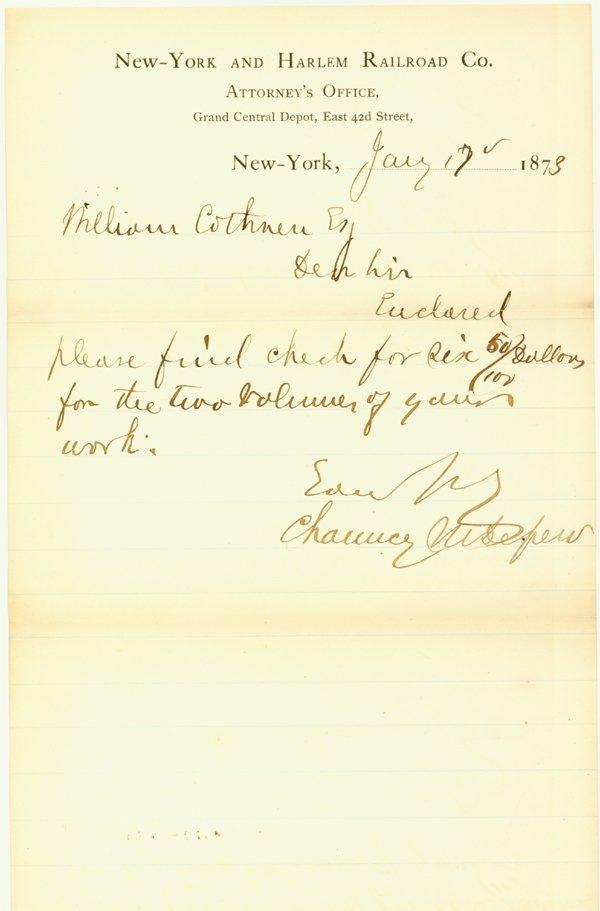 New-York and Harlem Railroad Co.
Attorney's Office,
Grand Central Depot, East 42d Street,
New-York, Jany 17 1873
William Cothren Esq
Dear Sir
Enclosed
please find check for six 50/100 Dollars
for the two volumes of your
work.
Chauncey M Depew